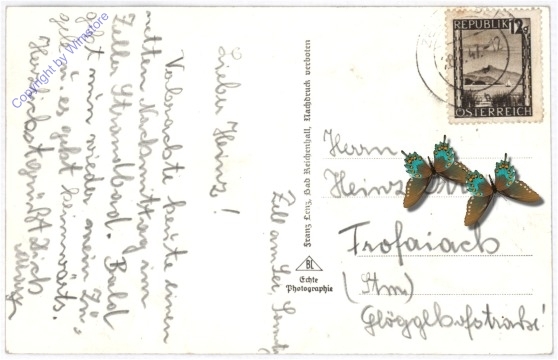 Zell am See
Lieber Heinz!
Verbrachte heute einen
netten Nachmittag im
Zeller Strandbad. Bald
geht nun wieder mein
es geht heimwärts.
Herzlichst grüßt Dich
Copyright by Wimstore
Franz Lenz, Bad Reichenhall, Nachdruck verboten
BL
Echte
Photographie
REPUBLIK 12g
ÖSTERREICH
Herrn
Heinz
Trofaiach
(Stm)
Glögglhofstraße!